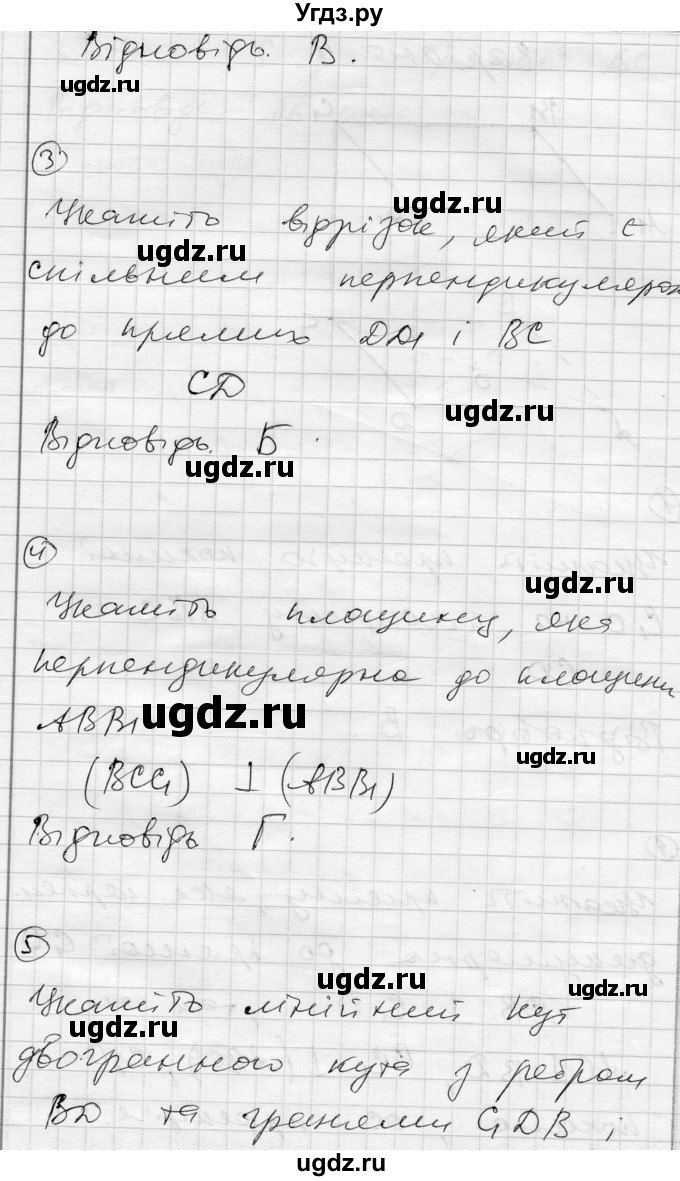 Угдз.ру
Відповідь. В.
ugdz.ru
3
ugdz.ru
Укажіть відрізок, який є
ugdz.ru
спільним перпендикуляром
до прямих DD1 і BC
CD
ugdz.ru
Відповідь. Б.
ugdz.ru
4
ugdz.ru
Укажіть площину, яка
перпендикулярна до площини
ABB1
ugdz.ru
(BCC1) ⊥ (ABB1)
ugdz.ru
Відповідь Г.
5
ugdz.ru
Укажіть лінійний кут
ugdz.ru
двогранного кута з ребром
BD та гранями C1DB і
ugdz.ru